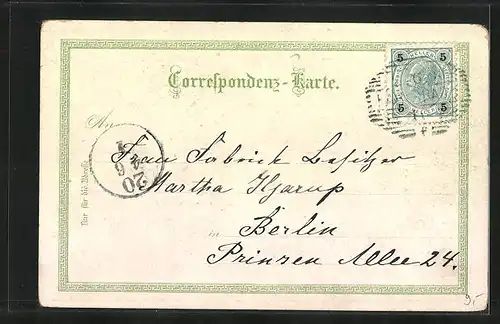 Correspondenz-Karte.
5 5
5 5
An
Frau Fabrik Besitzer
Martha Hjarup
in Berlin
Prinzen Allee 24.
Nur für die Adresse
20
9,-